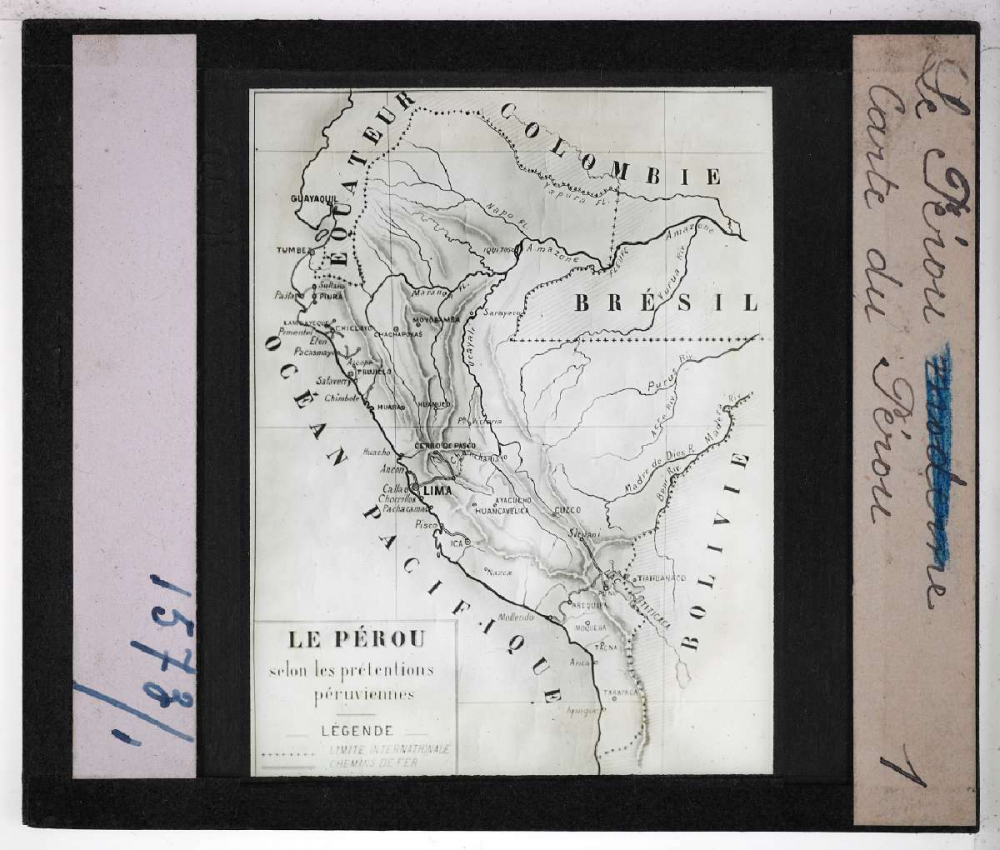 ÉQUATEUR
COLOMBIE
Yapura Fl.
GUAYAQUIL
Napo Fl.
Amazone
TUMBEZ
IQUITOS
Amazone
Yurua Riv.
Sullana
Paita
PIURA
Marañon Fl.
BRÉSIL
LAMBAYEQUE
CHICLAYO
MOYOBAMBA
Sarayacu
Pimentel
CHACHAPOYAS
Eten
Pacasmayo
Ucayale
Ascope
TRUJILLO
Purus Riv.
Salaverry
Chimbote
HUARAZ
HUANUCO
Acre Riv.
Madre Riv.
Pto Victoria
CERRO DE PASCO
Huacho
Chanchamayo
Ancon
Madre de Dios R.
Beni Riv.
Callao
LIMA
Chorrillos
Pachacamac
AYACUCHO
HUANCAVELICA
CUZCO
Pisco
ICA
Sicuani
Nazca
TIAHUANACO
PUNO
TITICACA
AREQUIPA
Mollendo
MOQUEGA
TACNA
Arica
TARAPACA
Iquique
BOLIVIE
OCÉAN PACIFIQUE
LE PÉROU
selon les prétentions
péruviennes
LÉGENDE
LIMITE INTERNATIONALE
CHEMINS DE FER
Le Pérou
Carte du Pérou
1
1573/1